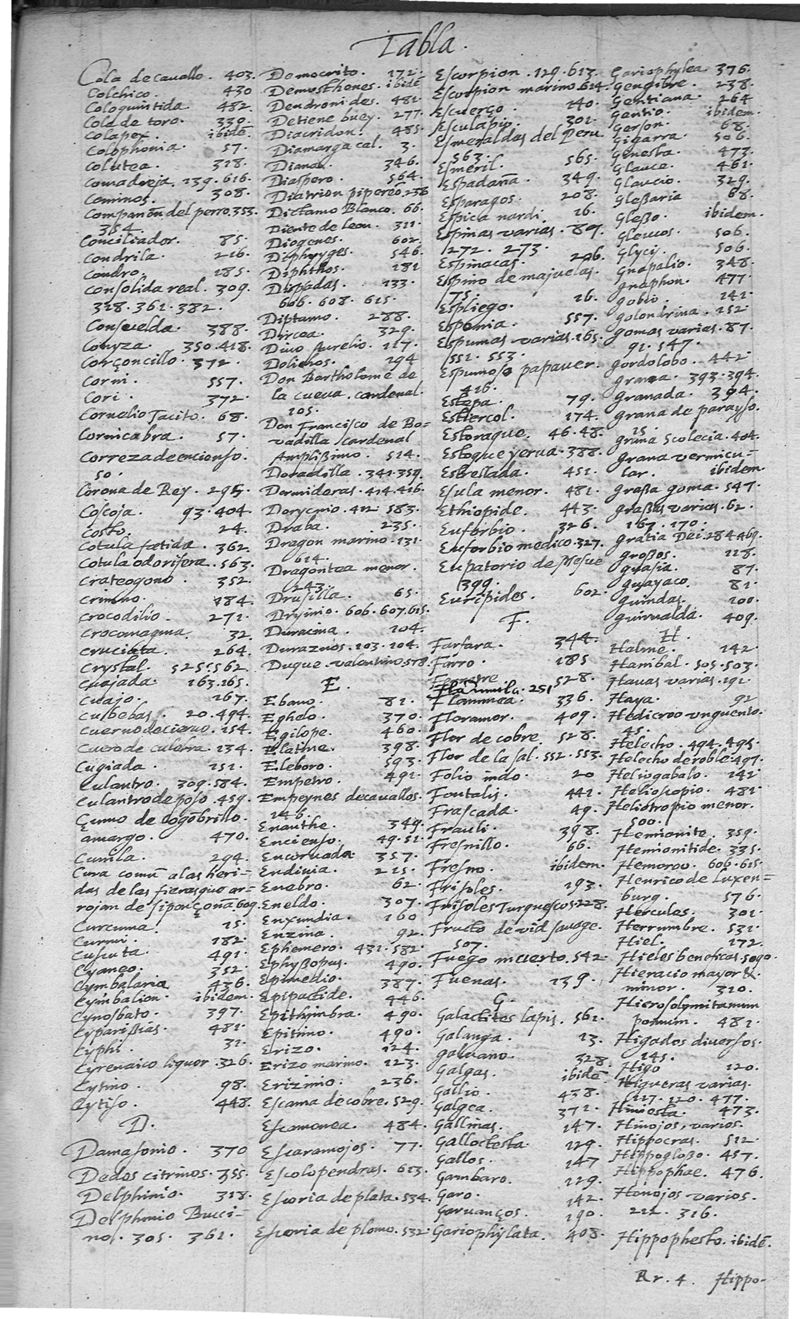 Tabla.
Cola de cavallo. 403.
Colchico. 430
Coloquintida 482
Cola de toro. 339.
Colapex. ibidē.
Colophonia. 57.
Colutea. 318.
Comadreja. 139. 616.
Cominos. 308.
Companion del perro. 353.
354.
Conciliador. 85.
Condrila. 216.
Condro. 185.
Consolida real. 309.
318. 361. 382.
Consuelda. 388.
Conyza. 350. 418.
Corçoncillo. 372.
Corni. 557.
Cori. 372
Cornelio Tacito. 68.
Cornicabra. 57.
Corteza de encienso.
50.
Corona de Rey. 295.
Coscoja. 93. 404.
Costo. 24.
Cotula fætida. 362.
Cotula odorifera. 563.
Crateogono. 352.
Crimno. 184.
Crocodilio. 271.
Crocomagma. 32.
Cruciata. 264.
Crystal. 525. 562.
Cuajada. 163. 165.
Cuajo. 167.
Cubebas. 20. 494.
Cuerno de ciervo. 154.
Cuero de culebra. 134.
Cugiada. 151.
Culantro. 309. 584.
Culantro de poso. 459.
Çumo de cogobrillo
amargo. 470.
Cunila. 294.
Cura comū a las heri-
das de las fieras que ar-
rojan de si ponçoña. 609.
Curcuma. 15.
Curmi. 182
Cuscuta. 491.
Cyango. 352.
Cymbalaria 436.
Cymbalion. ibidem.
Cynosbato. 397.
Cyparissias. 481.
Cyphi. 31.
Cyrenaico liquor. 326.
Cytino. 98.
Cytiso. 448.
D.
Damasonio. 370
Dedos citrinos. 355.
Delphinio. 313.
Delphinio Bucci-
nol. 305. 361.
Democrito. 172.
Demosthenes. ibidē.
Dendroides. 481.
Detiene buey. 277.
Diacridon. 485.
Diamargacal. 3.
Diana. 346.
Diaspero. 564.
Diatrion pipereō. 236
Dictamo Blanco. 66.
Diente de leon. 311.
Diogenes. 602.
Diphryges. 546.
Diphthos. 181
Dipsadas. 133.
606. 608. 615.
Diptamo. 288.
Dircea. 329.
Divo Aurelio. 117.
Dolichos. 194
Don Bartholome de
la cueva, cardenal.
105.
Don Francisco de Bo-
vadilla, cardenal
Amplissimo. 514.
Doradilla. 341. 359.
Dormideras. 414. 416.
Dorycnio. 412. 583.
Draba. 235.
Dragon marino. 131.
614.
Dragontea menor.
243.
Drusilla. 65.
Dryino. 606. 607. 615.
Duracina. 104.
Duraznos. 103. 104.
Duque valentino. 578.
E.
Ebano. 81.
Eghelo. 370.
Egilope. 460.
Elatine. 398.
Eleboro. 593.
Empetro. 491.
Empeynes de cavallos.
146.
Enanthe. 349.
Encienso. 49. 51.
Encorvada 357.
Endivia. 215.
Enebro. 62.
Eneldo. 307.
Enxundia. 160
Enzina. 92.
Ephemero. 431. 582.
Ephyssopus. 490.
Epimedio. 387.
Epipactide. 446.
Epithymbra. 490.
Epithimo. 490.
Erizo. 124.
Erizo marino. 123.
Erizmio. 236.
Escama de cobre. 529.
Escamonea. 484.
Escaramojos. 77.
Escolopendras. 613.
Escoria de plata. 534.
Escoria de plomo. 532.
Escorpion. 129. 613.
Escorpion marino. 614.
Escuerço. 140.
Esculapio. 301.
Esmeraldas del Peru
563.
Esmeril. 565.
Espadaña. 349.
Esparagos. 208.
Espica nardi. 16.
Espinas varias. 807.
1272. 273.
Espinacas. 206.
Espino de majuelas.
75.
Espliego. 16.
Esponia. 557.
Espumas varias. 165.
551. 553.
Espumoso papaver.
416.
Estepa. 79.
Estiercol. 174.
Estoraque. 46. 48.
Estoque yerva. 388.
Estrellada. 451.
Esula menor. 481.
Ethiopide. 443.
Euforbio. 326.
Euforbio medico. 327.
Eupatorio de Mesue
399.
Euripides. 602.
F.
Farfara. 344.
Farro. 185
528.
Flammula. 251
Flaminea. 336.
Floramor. 409.
Flor de cobre. 528.
Flor de la sal. 552. 553.
Folio indo. 20
Fontalis. 441.
Frascada. 49.
Frauli. 398.
Fresnillo. 66.
Fresno. ibidem.
Frisoles. 193.
Frisoles Turquescos. 228.
Fructo de vid salvage.
507.
Fuego muerto. 542.
Fuenas. 139.
G.
Galactites lapis. 561.
Galanga. 13.
Galvano. 328.
Galgas. ibidē.
Gallio. 438.
Galgea. 371.
Gallinas. 147.
Gallocresta. 129.
Gallos. 147
Gambaro. 129.
Garo. 142.
Garvanços. 190.
Gariophylata. 408.
Gariophylea. 376.
Gengibre. 238.
Gentiana. 264.
Gentio. ibidem.
Gerson. 68.
Gigarra. 506.
Ginesta. 473.
Glauca. 461.
Glaucio. 329.
Glessaria 68.
Glesso. ibidem.
Gleucos. 506.
Glyci. 506.
Gnapalio. 348.
Gnaphon. 477.
Gobio. 141.
Golondrina. 152
Gomas varias. 87.
91. 547.
Gordolobo. 442.
Grana. 393. 394.
Granada. 394.
Grana de parayso.
15.
Grana Scolecia. 404.
Grana vermicu-
lar. ibidem.
Grassa goma. 547.
Grassas varias. 62.
167. 170.
Gratia Dei. 284. 469.
Grossos. 118.
Guasia. 87.
Guayaco. 81.
Guindas. 100.
Guirnalda. 409.
H.
Halme. 142
Hanibal. 505. 503.
Havas varias. 191.
Haya. 92
Hedicroo unguento.
45.
Helecho. 494. 495.
Helecho de roble. 497.
Heliogabalo. 141.
Helioscopio. 481.
Heliotropio menor.
500.
Hemionite. 359.
Hemionitide. 335.
Hemoroo. 606. 615.
Henrico de Luxen-
burg. 576.
Hercules. 301.
Herrumbre. 531.
Hiel. 172.
Hieles beneficas.
Hieracio mayor &
minor. 310.
Hierosolymitanum
pomum. 481.
Higados diversos.
145.
Higo 120.
Higueras varias.
117. 120. 477.
Hiniesta 473.
Hinojos, varios.
Hippocras. 512.
Hippoglosso. 457.
Hippophae. 476.
Honojos varios.
212. 316.
Hippophesto. ibidē.
Rr. 4. Hippo-